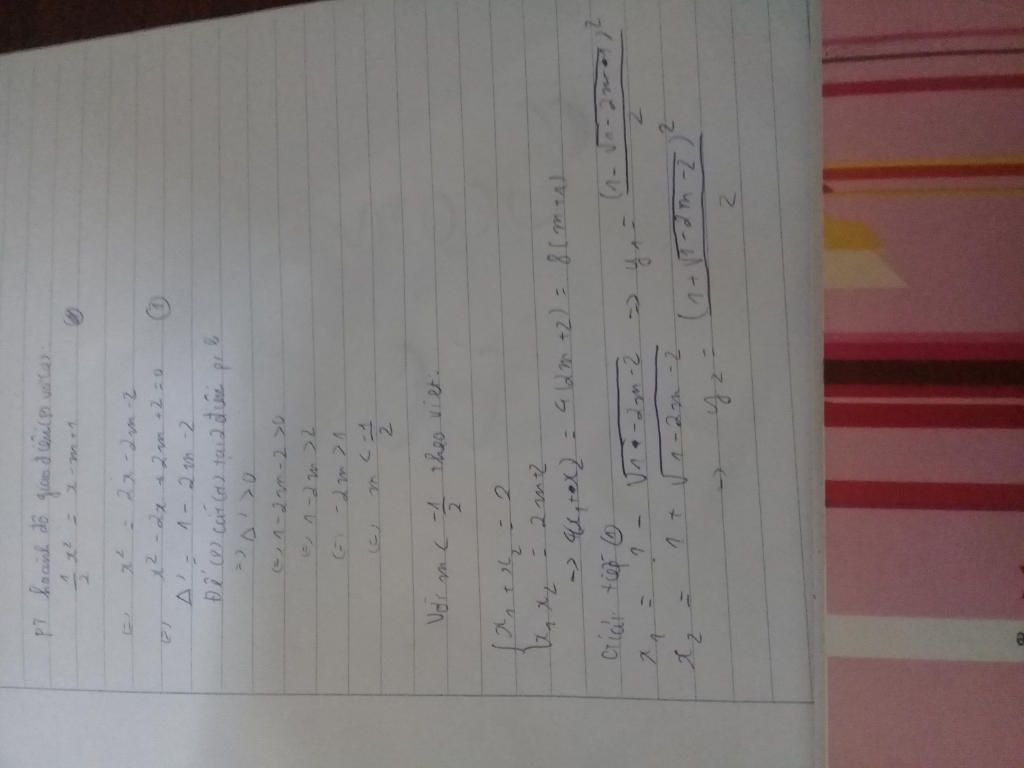 pt hoành độ giao điểm
1/2 x² = x - m + 1
(=) x² = 2x - 2m - 2
(=) x² - 2x + 2m + 2 = 0 (1)
Δ' = 1 - 2m - 2
Để (P) cắt (d) tại 2 điểm p,b
=) Δ' > 0
(=) 1 - 2m - 2 > 0
(=) 1 - 2m > 2
(=) - 2m > 1
(=) m < -1/2
Với m < -1/2 theo viet:
{ x₁ + x₂ = 2
{ x₁x₂ = 2m+2
→ 4x₁x₂ = 4(2m+2) = 8(m+1)
Giải tiếp (1)
x₁ = 1 - √1-2m-2 => y₁ = (1 - √1-2m+1)² / 2
x₂ = 1 + √1-2m-2
→ y₂ = (1 + √1-2m-2)² / 2